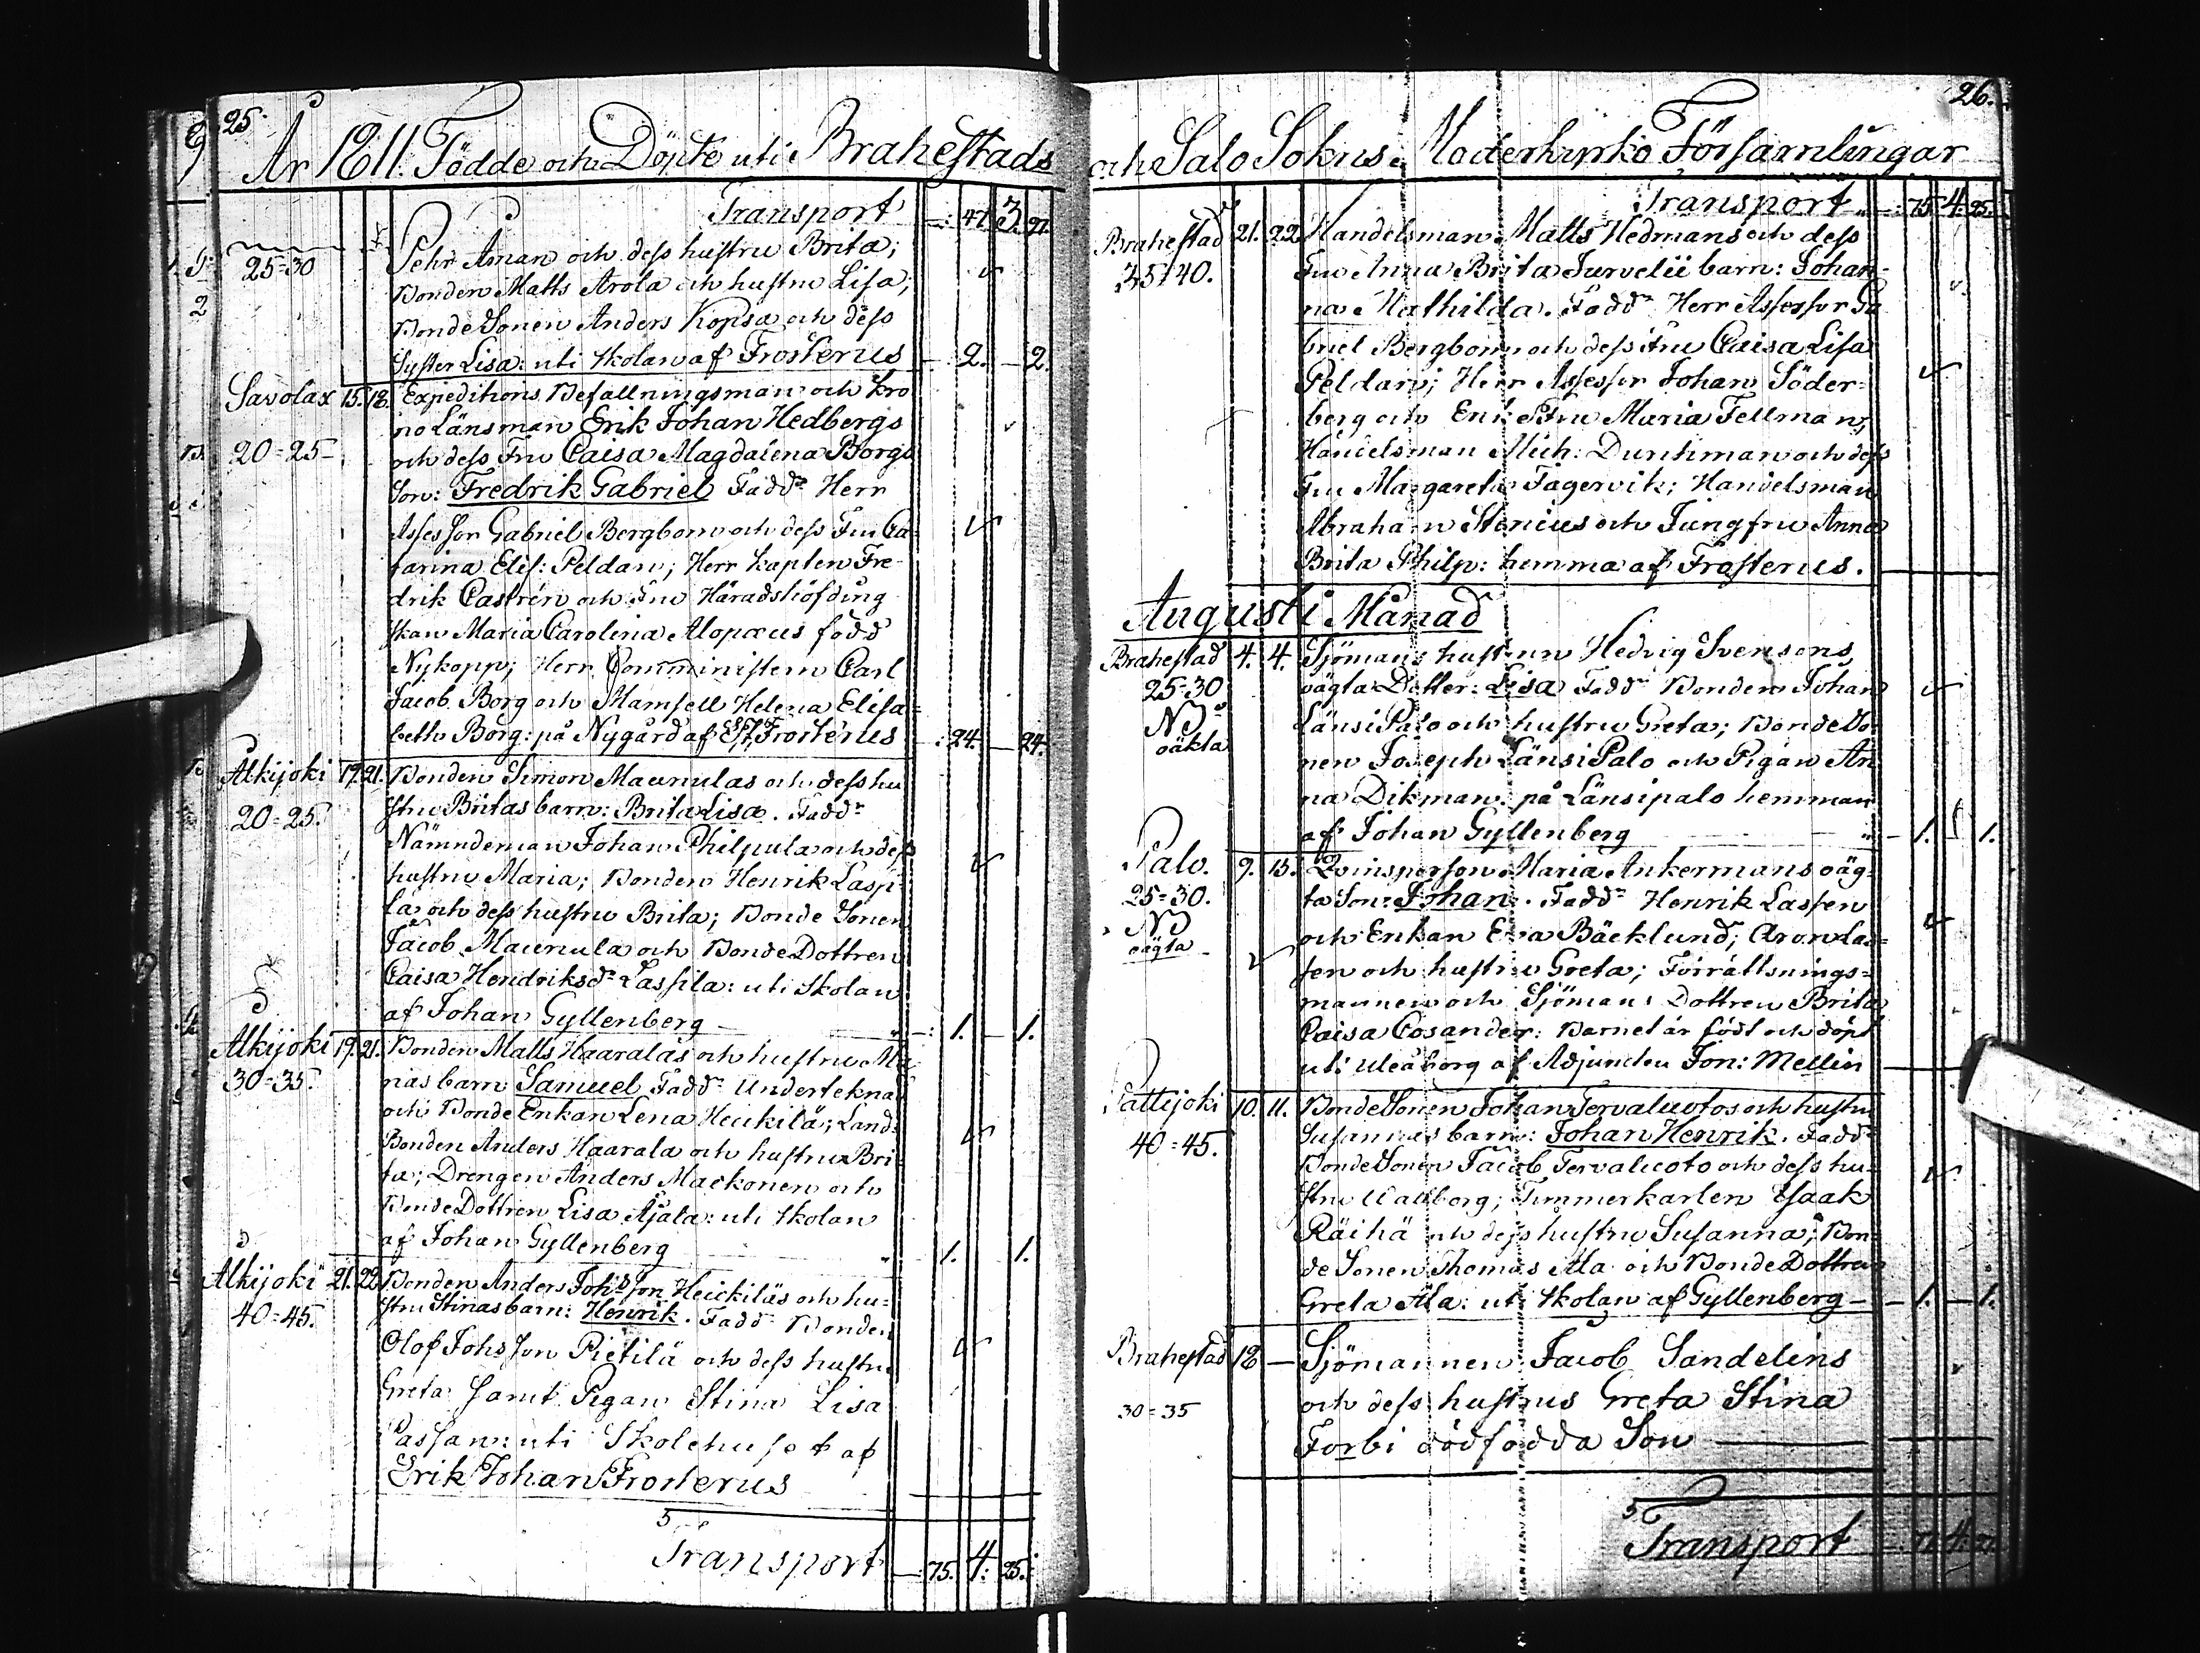 25.
År 1811. Födde och Döpte uti Brahestads
Transport —: 47. 3. 27.
25=30 Pehr Åman och dess hustru Brita;
Bonden Matts Arola och hustru Lisa;
BondeSonen Anders Kopsa och dess
Syster Lisa: uti Skolan af Frosterus —: 2. — 2.
Savolax 15. 18. Expeditions Befallningsman och Kro
no Länsman Erik Johan Hedbergs
20=25 och dess Fru Caisa Magdalena Borgs
Son: Fredrik Gabriel Fadd: Herr
Assessor Gabriel Bergbom och dess Fru Ca=
tarina Elis: Peldan; Herr Kapten Fre
drik Castrén och Fru Häradshöfding
skan Maria Carolina Alopæus född
Nykopp; Herr Comministern Carl
Jacob Borg och Mamsell Helena Elisa=
beth Borg: på Nygård af Frosterus —: 24. — 24.
Alkijoki 19. 21. Bonden Simon Maunulas och dess hu
stru Britas barn: Brita Lisa. Fadd:
20=25. Nämndeman Johan Philpula och dess
hustru Maria; Bonden Henrik Lassi
la och dess hustru Brita; Bonde Sonen
Jacob Maunula och BondeDottren
Caisa Hendriksd: Lassila: uti Skolan
af Johan Gyllenberg —: 1. — 1.
Alkijoki 19. 21. Bonden Matts Haaralas och hustru Ma
30=35. rias barn Samuel Fadd: Underteknad
och Bonde Enkan Lena Heickilä; Land=
Bonden Anders Haarala och hustru Bri
ta; Drengen Anders Mackonen och
BondeDottren Lisa Ajala: uti Skolan
af Johan Gyllenberg 1. 1.
Alkijoki 21. 22. Bonden Anders Johsson Heickiläs och hu=
40=45. stru Stinas barn: Henrik. Fadd: Bonden
Olof Johsson Pietilä och dess hustru
Greta samt Pigan Stina Lisa
Passan: uti Skolehuset af
Erik Johan Frosterus
5
Transport —: 75. 4: 25.
26.
och Salo Sokns Moderkyrko Församlingar
Transport —: 75. 4. 25.
Brahestad 21. 22. Handelsman Matts Hedmans och dess
35=40. Fru Anna Brita Jurvelii barn: Johan=
na Mathilda. Fadd: Herr Assessor Ga
briel Bergbom och dess Fru Caisa Lisa
Peldan; Herr Assessor Johan Söder=
berg och Enke Fru Maria Fellman;
Handelsman Mich: Durchman och dess
Fru Margareta Fagervik; Handelsman
Abraham Stenius och Jungfru Anna
Brita Philp: hemma af Frosterus.
Augusti Månad
Brahestad 4. 4. Sjömans hustrun Hedvig Svensons
25=30 oägta Dotter: Lisa Fadd: Bonden Johan
NB LänsiPalo och hustru Greta; BondeSo
oäkta nen Joseph LänsiPalo och Pigan An
na Dikman: på Länsipalo hemman
af Johan Gyllenberg — 1. 1.
Salo. 9. 15. Qvinspersonen Maria Ankermans oäg=
25=30. ta Son: Johan. Fadd: Henrik Lassen
NB och Enkan Eva Bäcklund; Aron Las=
oägta sen och hustru Greta; Förrättnings=
mannen och Sjömans Dottren Brita
Caisa Cosander: Barnet är födt och döpt
uti Uleåborg af Adjuncten Jon: Mellin
Pattijoki 10. 11. BondeSonen Johan Tervaluotos och hustru
40=45. Susannas barn: Johan Henrik. Fadd:
BondeSonen Jacob Tervaluoto och dess hu=
stru Walborg; Timmerkarlen Isaak
Räihä och dess hustru Susanna; Bon=
de Sonen Thomas Ala och BondeDottren
Greta Ala: uti Skolan af Gyllenberg — 1. — 1.
Brahestad 18 — Sjömannen Jacob Sandelins
30=35 och dess hustrus Greta Stina
Forbi dödfödda Son
5
Transport 4.